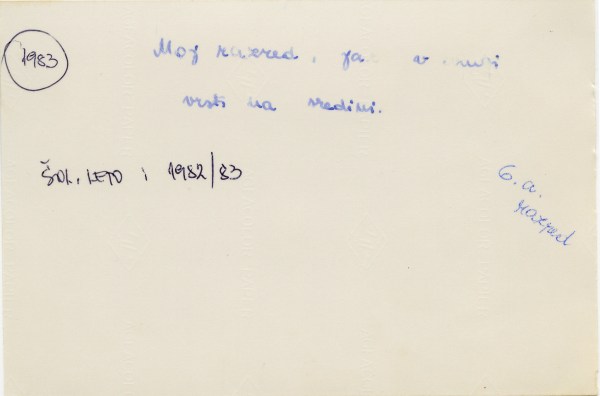 1983
Moj razred, ja v
vrsti na sredini.
ŠOL. LETO : 1982/83
6. a.
razred